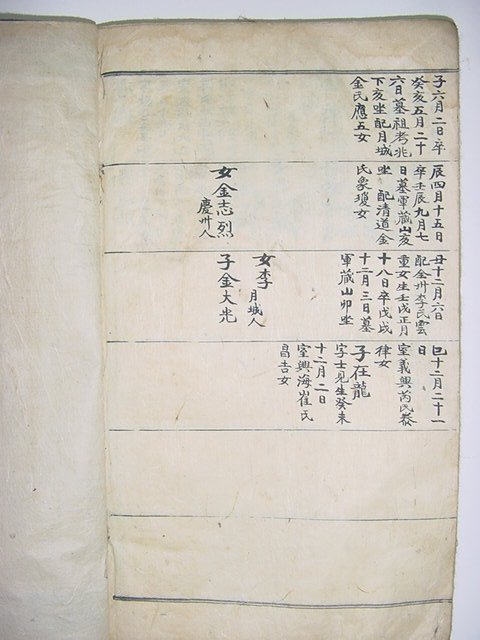 子六月二日卒
癸亥五月二十
六日墓祖考兆
下亥坐配月城
金氏應五女
辰四月十五日
卒壬辰九月七
日墓軍藏山亥
坐 配清道金
氏象瓊女
女金志烈
慶州人
丑十二月六日
配全州李氏雲
童女生壬戌正月
十八日卒戊戌
十二月三日墓
軍藏山卯坐
女李
月城人
子金大光
巳十二月二十一
日
室義興芮氏泰
律女
子在龍
字士見生癸未
十二月二日
室興海崔氏
昌吉女